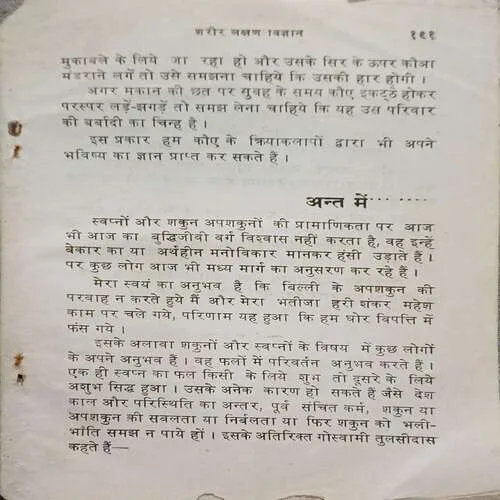 शरीर लक्षण विज्ञान १९१
मुकाबले के लिये जा रहा हो और उसके सिर के ऊपर कौआ
मंडराने लगें तो उसे समझना चाहिये कि उसकी हार होगी ।
अगर मकान की छत पर सुबह के समय कौए इकट्ठे होकर
परस्पर लड़ें-झगड़ें तो समझ लेना चाहिये कि यह उस परिवार
की बर्बादी का चिन्ह है ।
इस प्रकार हम कौए के क्रियाकलापों द्वारा भी अपने
भविष्य का ज्ञान प्राप्त कर सकते हैं ।
अन्त में··· ·····
स्वप्नों और शकुन अपशकुनों की प्रामाणिकता पर आज
भी आज का बुद्धिजीवी बर्ग विश्वास नहीं करता है, वह इन्हें
बेकार का या अर्थहीन मनोविकार मानकर हंसी उड़ाते हैं ।
पर कुछ लोग आज भी मध्य मार्ग का अनुसरण कर रहे हैं ।
मेरा स्वयं का अनुभव है कि बिल्ली के अपशकुन की
परवाह न करते हुये मैं और मेरा भतीजा हरी शंकर महेश
काम पर चले गये, परिणाम यह हुआ कि हम घोर विपत्ति में
फंस गये ।
इसके अलावा शकुनों और स्वप्नों के विषय में कुछ लोगों
के अपने अनुभव हैं । वह फलों में परिवर्तन अनुभव करते हैं ।
एक ही स्वप्न का फल किसी के लिये शुभ तो दूसरे के लिये
अशुभ सिद्ध हुआ । उसके अनेक कारण हो सकते हैं जैसे देश
काल और परिस्थिति का अन्तर, पूर्व संचित कर्म, शकुन या
अपशकुन की सवलता या निर्बलता या फिर शकुन को भली-
भाँति समझ न पाये हों । इसके अतिरिक्त गोस्वामी तुलसीदास
कहते हैं—